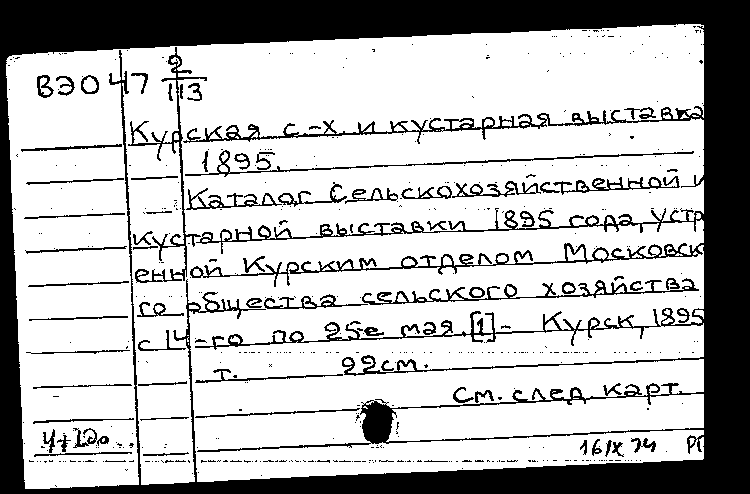 ВЭО 47 2/113
Курская с.-х. и кустарная выставка
1895.
Каталог Сельскохозяйственной и
кустарной выставки 1895 года, устр
енной Курским отделом Московск
го общества сельского хозяйства
с 14-го по 25е мая. [1] - Курск, 1895
т. 22см.
См. след. карт.
16/X 74 РГ